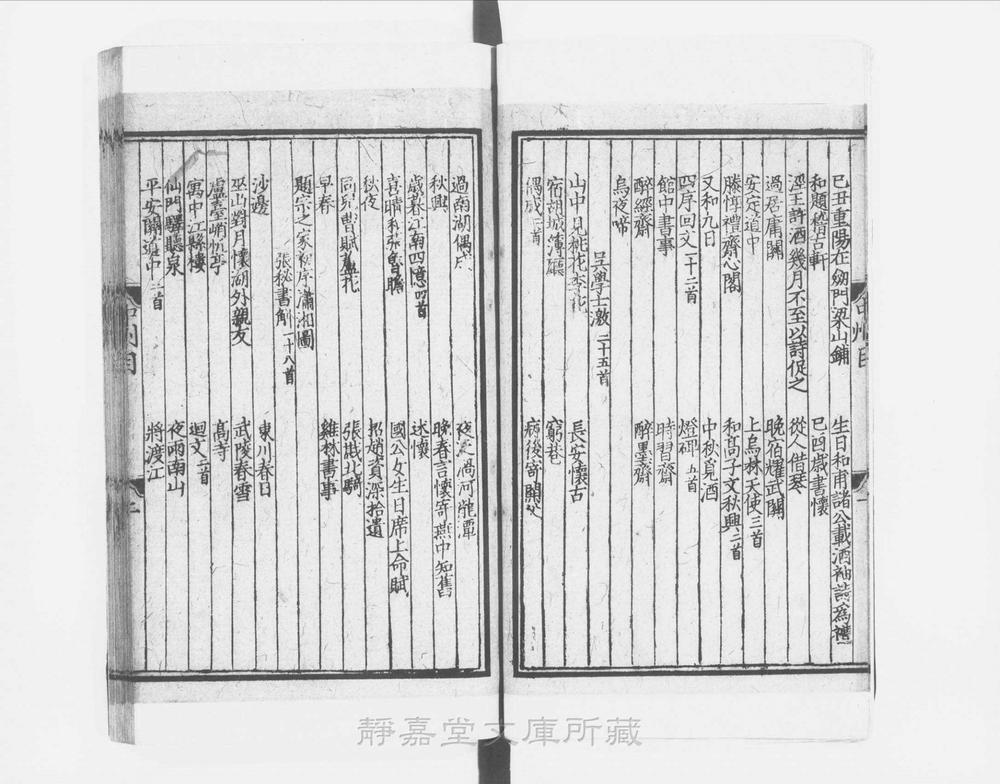 己丑重陽在劒門梁山鋪　生日和甫諸公載酒袖詩爲禮
和題稽古軒　己酉歲書懷
涇王許酒幾月不至以詩促之　從人借琴
過居庸關　晚宿耀武關
安定道中　上烏林天使三首
滕惇禮齋心閣　和高子文秋興二首
又和九日　中秋覓酒
四序回文十二首　燈碑五首
館中書事　時習齋
醉經齋　醉墨齋
烏夜啼
吳學士激二十五首
山中見桃花李花　長安懷古
宿胡城簿廳　窮巷
偶成二首　病後寄開父
過南湖偶成　夜過滿河龍潭
秋興　晚春言懷寄燕中知舊
歲暮江南四憶四首　述懷
喜晴　國公女生日席上命賦
秋夜　招趙資深拾遺
同兒曹賦蘆花　張戡北騎
早春　雞林書事
題宗之家初序瀟湘圖
張秘書斛一十八首
沙邊　東川春日
巫山對月懷湖外親友　武陵春雪
盧臺峭帆亭　高寺
寓中江縣樓　迴文二首
仙門驛聽泉　夜雨南山
平安關道中三首　將渡江
靜嘉堂文庫所藏